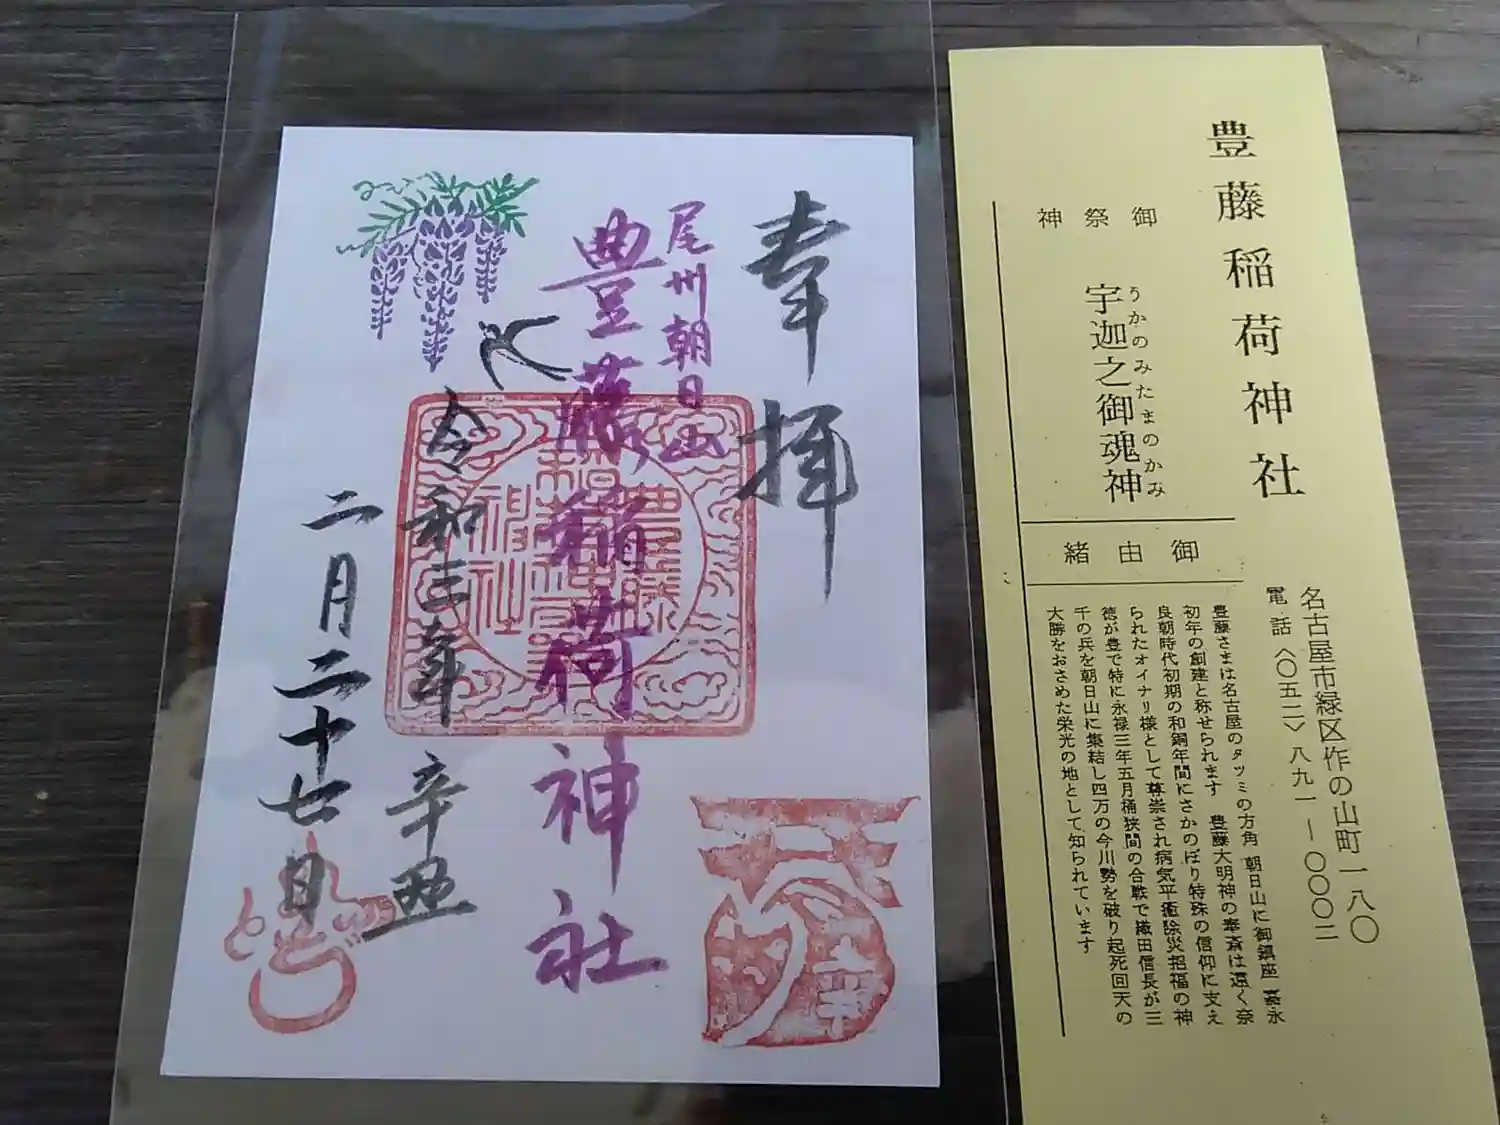 奉拝
尾州朝日山
豊藤稲荷神社
令和三年 辛丑
二月二十七日
豊藤
稲荷
神社
豊藤稲荷神社
名古屋市緑区作の山町一八〇
電話〈〇五二〉八九一ー〇〇〇二
御祭神
宇迦之御魂神
うかのみたまのかみ
御由緒
豊藤さまは名古屋のタツミの方角 朝日山に御鎮座 嘉永
初年の創建と称せられます 豊藤大明神の奉斎は遠く奈
良朝時代初期の和銅年間にさかのぼり特殊の信仰に支え
られたオイナリ様として尊崇され病気平癒除災招福の神
徳が豊で特に永禄三年五月桶狭間の合戦で織田信長が三
千の兵を朝日山に集結し四万の今川勢を破り起死回天の
大勝をおさめた栄光の地として知られています